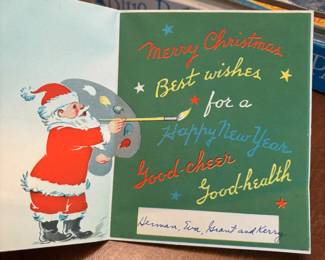 Merry Christmas
Best wishes
for a
Happy New Year
Good-cheer
Good-health
Herman, Eva, Grant and Kerry